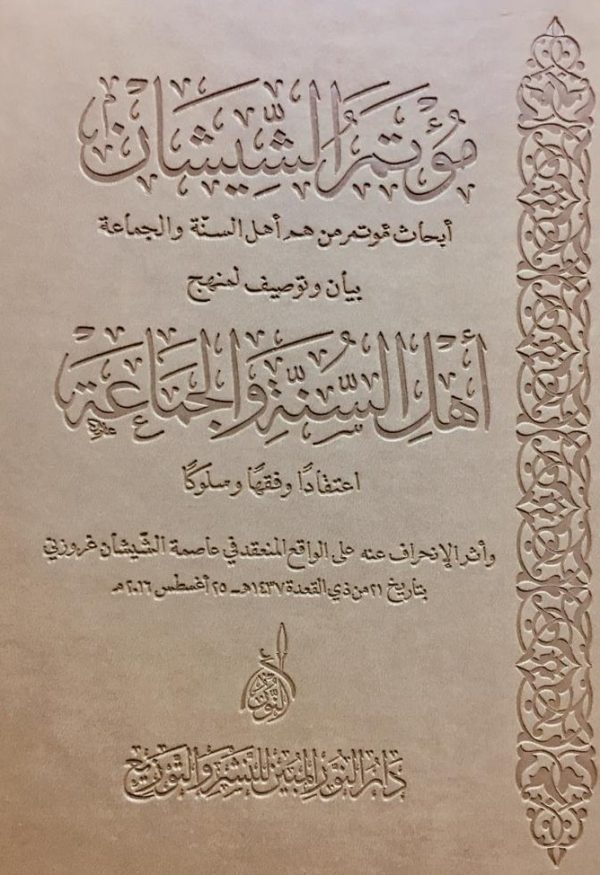 مُؤتمَرُ الشِّيشَان
أبحاث مؤتمر من هم أهل السنّة والجماعة
بيان وتوصيف لمنهج
أهْلِ السُّنَّةِ وَالجَمَاعَة
اعتقادًا وفقهًا وسلوكًا
وأثر الإنحراف عنه على الواقع المنعقد في عاصمة الشّيشان غروزني
بتاريخ ٢١ من ذي القعدة ١٤٣٧هـ - ٢٥ أغسطس ٢٠١٦م
النُّور
دَارُ النُّوْرِ المُبِيْنِ لِلنَّشْرِ وَالتَّوْزِيْعِ